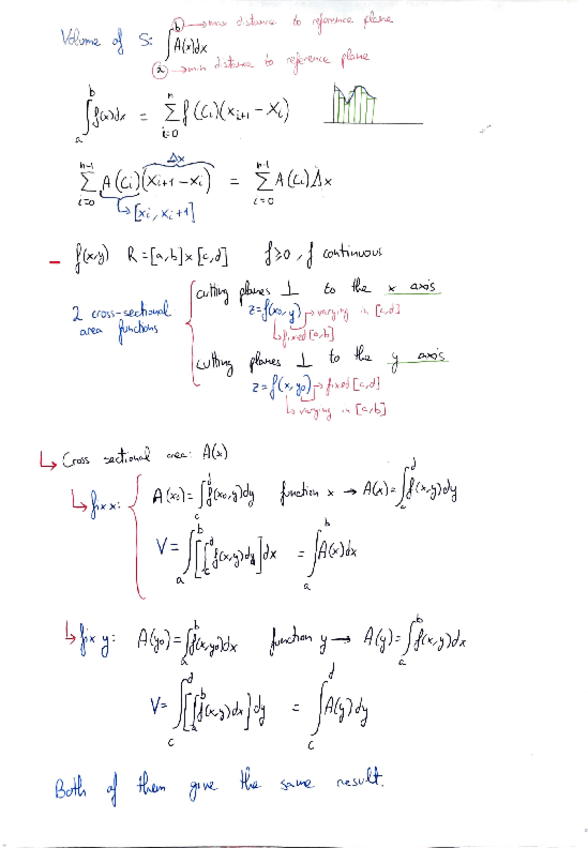 b → max distance to reference plane
Volume of S: ∫ A(x)dx
a → min distance to reference plane
∫_a^b f(x)dx = Σ_{i=0}^{n} f(Ci)(x_{i+1} - x_i)
Δx
Σ_{i=0}^{n-1} A(Ci)(x_{i+1} - x_i) = Σ_{i=0}^{n-1} A(Ci)Δx
↳ [xi, xi+1]
- f(x,y) R = [a,b] x [c,d] f≥0, f continuous
2 cross-sectional area functions
cutting planes ⊥ to the x axis
z = f(x0, y) → varying in [c,d]
↳ fixed [a,b]
cutting planes ⊥ to the y axis
z = f(x, y0) → fixed [c,d]
↳ varying in [a,b]
↳ Cross sectional area: A(x)
↳ fix x: A(x0) = ∫_c^d f(x0,y)dy function x → A(x) = ∫_c^d f(x,y)dy
V = ∫_a^b [∫_c^d f(x,y)dy] dx = ∫_a^b A(x)dx
↳ fix y: A(y0) = ∫_a^b f(x,y0)dx function y → A(y) = ∫_a^b f(x,y)dx
V = ∫_c^d [∫_a^b f(x,y)dx] dy = ∫_c^d A(y)dy
Both of them give the same result.